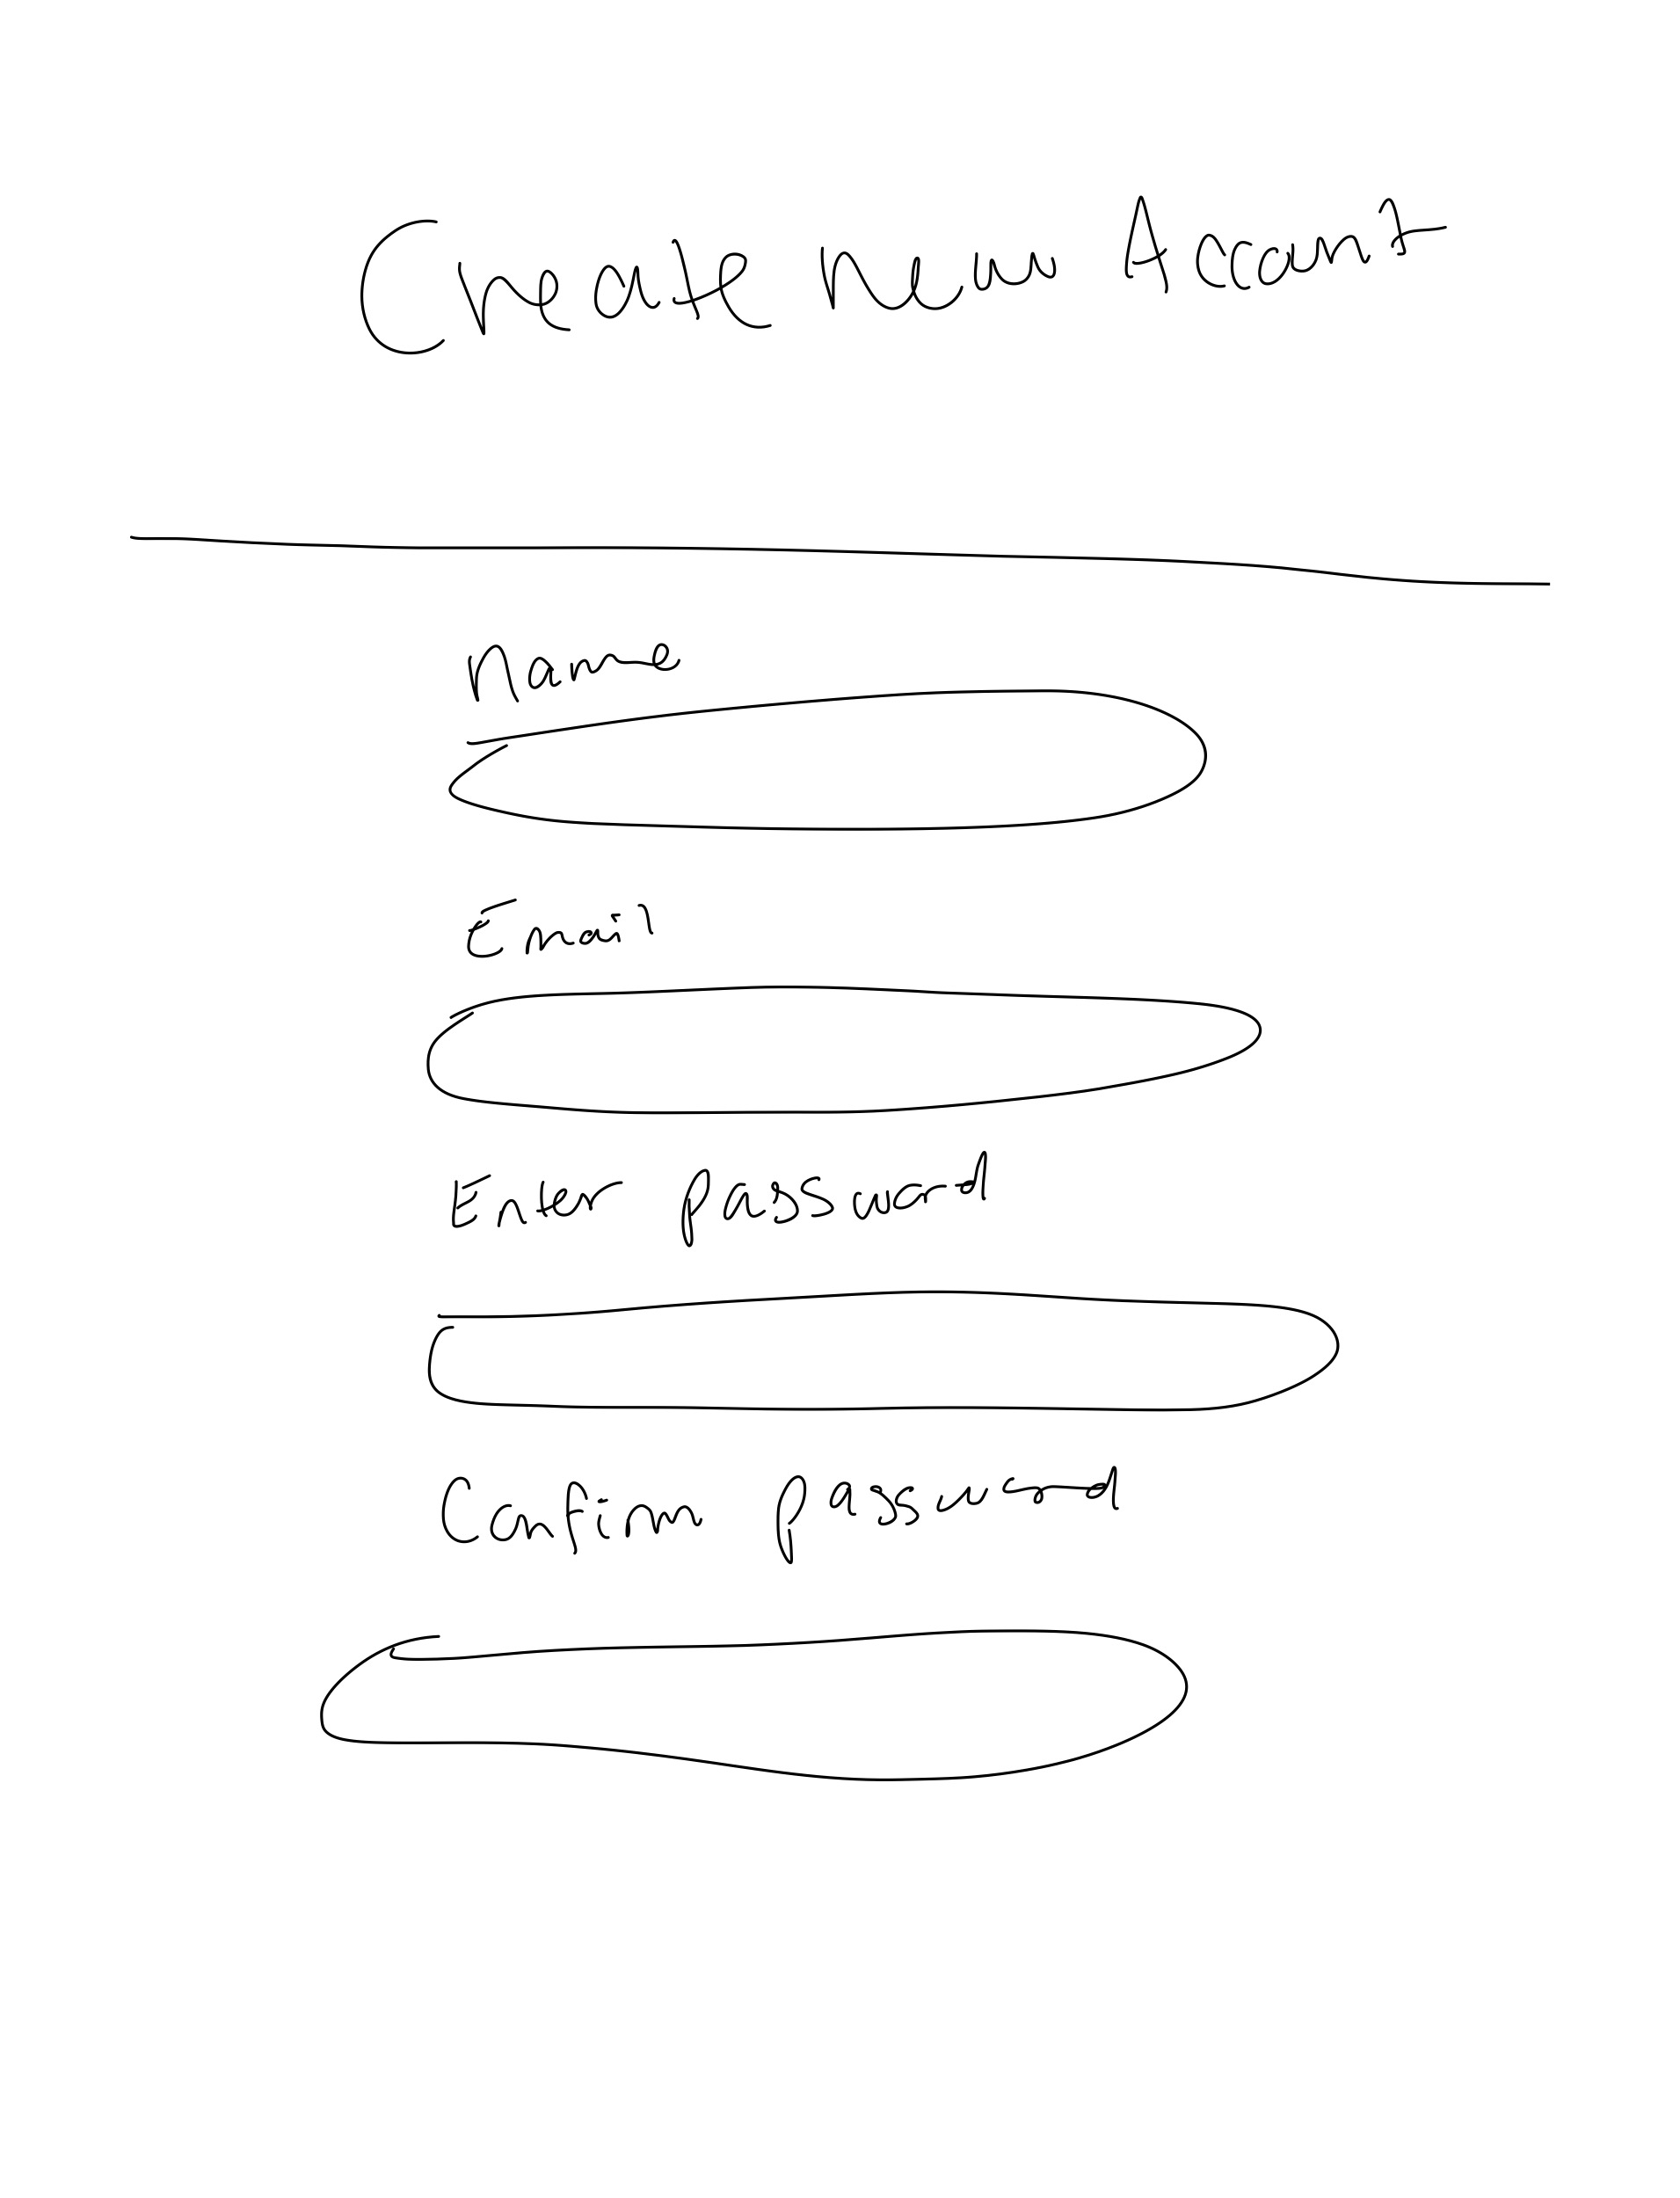 Create New Account
Name
Email
Enter password
Confirm password